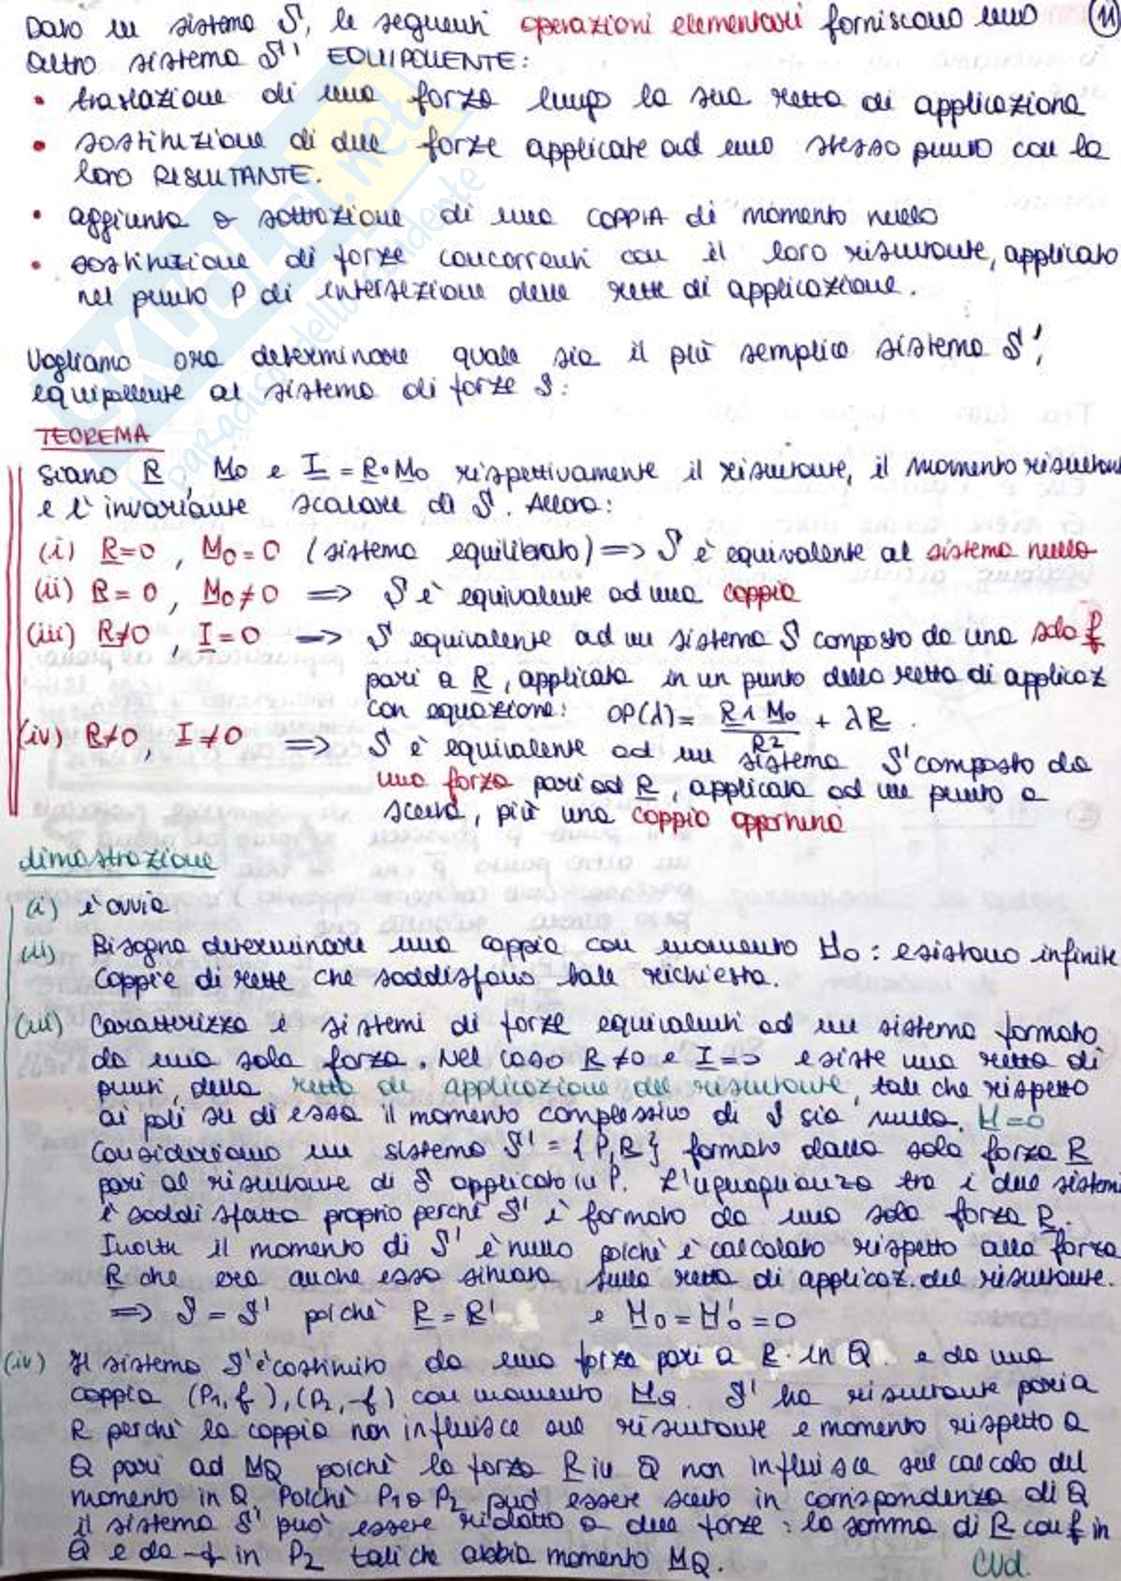 Dato un sistema S, le seguenti operazioni elementari forniscono uno (11)
altro sistema S' EQUIPOLLENTE:
• traslazione di una forza lungo la sua retta di applicazione
• sostituzione di due forze applicate ad uno stesso punto con la
loro RISULTANTE.
• aggiunta o sottrazione di una COPPIA di momento nullo
• sostituzione di forze concorrenti con il loro risultante, applicato
nel punto P di intersezione delle rette di applicazione.
Vogliamo ora determinare quale sia il più semplice sistema S',
equipollente al sistema di forze S:
TEOREMA
Siano R, Mo e I = R•Mo rispettivamente il risultante, il momento risultant
e l'invariante scalare di S. Allora:
(i) R=0, Mo=0 (sistema equilibrato) => S è equivalente al sistema nullo
(ii) R=0, Mo≠0 => S è equivalente ad una coppia
(iii) R≠0, I=0 => S equivalente ad un sistema S composto da una sola f
pari a R, applicata in un punto della retta di applicaz
con equazione: OP(λ)= R∧Mo/R² + λR.
(iv) R≠0, I≠0 => S è equivalente ad un sistema S' composto da
una forza pari ad R, applicata ad un punto a
scelta, più una coppia opportuna
dimostrazione
(i) è ovvia
(ii) Bisogna determinare una coppia con momento Mo: esistono infinite
coppie di rette che soddisfano tale richiesta.
(iii) Caratterizza i sistemi di forze equivalenti ad un sistema formato
da una sola forza. Nel caso R≠0 e I=0 esiste una retta di
punti, della retta di applicazione del risultante, tale che rispetto
ai poli su di essa il momento complessivo di S sia nullo. M=0
Consideriamo un sistema S' = {P,R} formato dalla sola forza R
pari al risultante di S applicato in P. L'uguaglianza tra i due sistemi
è soddisfatta proprio perché S' è formato da una sola forza R.
Inoltre il momento di S' è nullo poichè è calcolato rispetto alla forza
R che era anche essa situata sulla retta di applicaz. del risultante.
=> S = S' poichè R = R' e Mo = M'o = 0
(iv) Il sistema S' è costituito da una forza pari a R in Q e da una
coppia (P1, f), (P2, -f) con momento MQ. S' ha risultante pari a
R perchè la coppia non influisce sul risultante e momento rispetto a
Q pari ad MQ poichè la forza R in Q non influisce sul calcolo del
momento in Q. Poichè P1 o P2 può essere scelto in corrispondenza di Q
il sistema S' può essere ridotto a due forze: la somma di R con f in
Q e da -f in P2 tali che abbia momento MQ. CVd.
SKUOLA.net
il paradiso dello studente